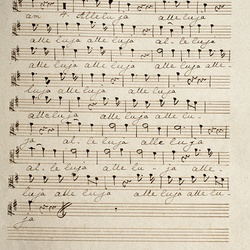 am 4. Alleluja alleluja
alle luja alleluja al. le luja
alle luja alle luja alle luja alle-
luja alle luja alleluja
alle luja alleluja alle lu-
ja al. leluja alle luja
al. le luja alle lu- ja alle
luja alle luja alleluja alle lu-
ja